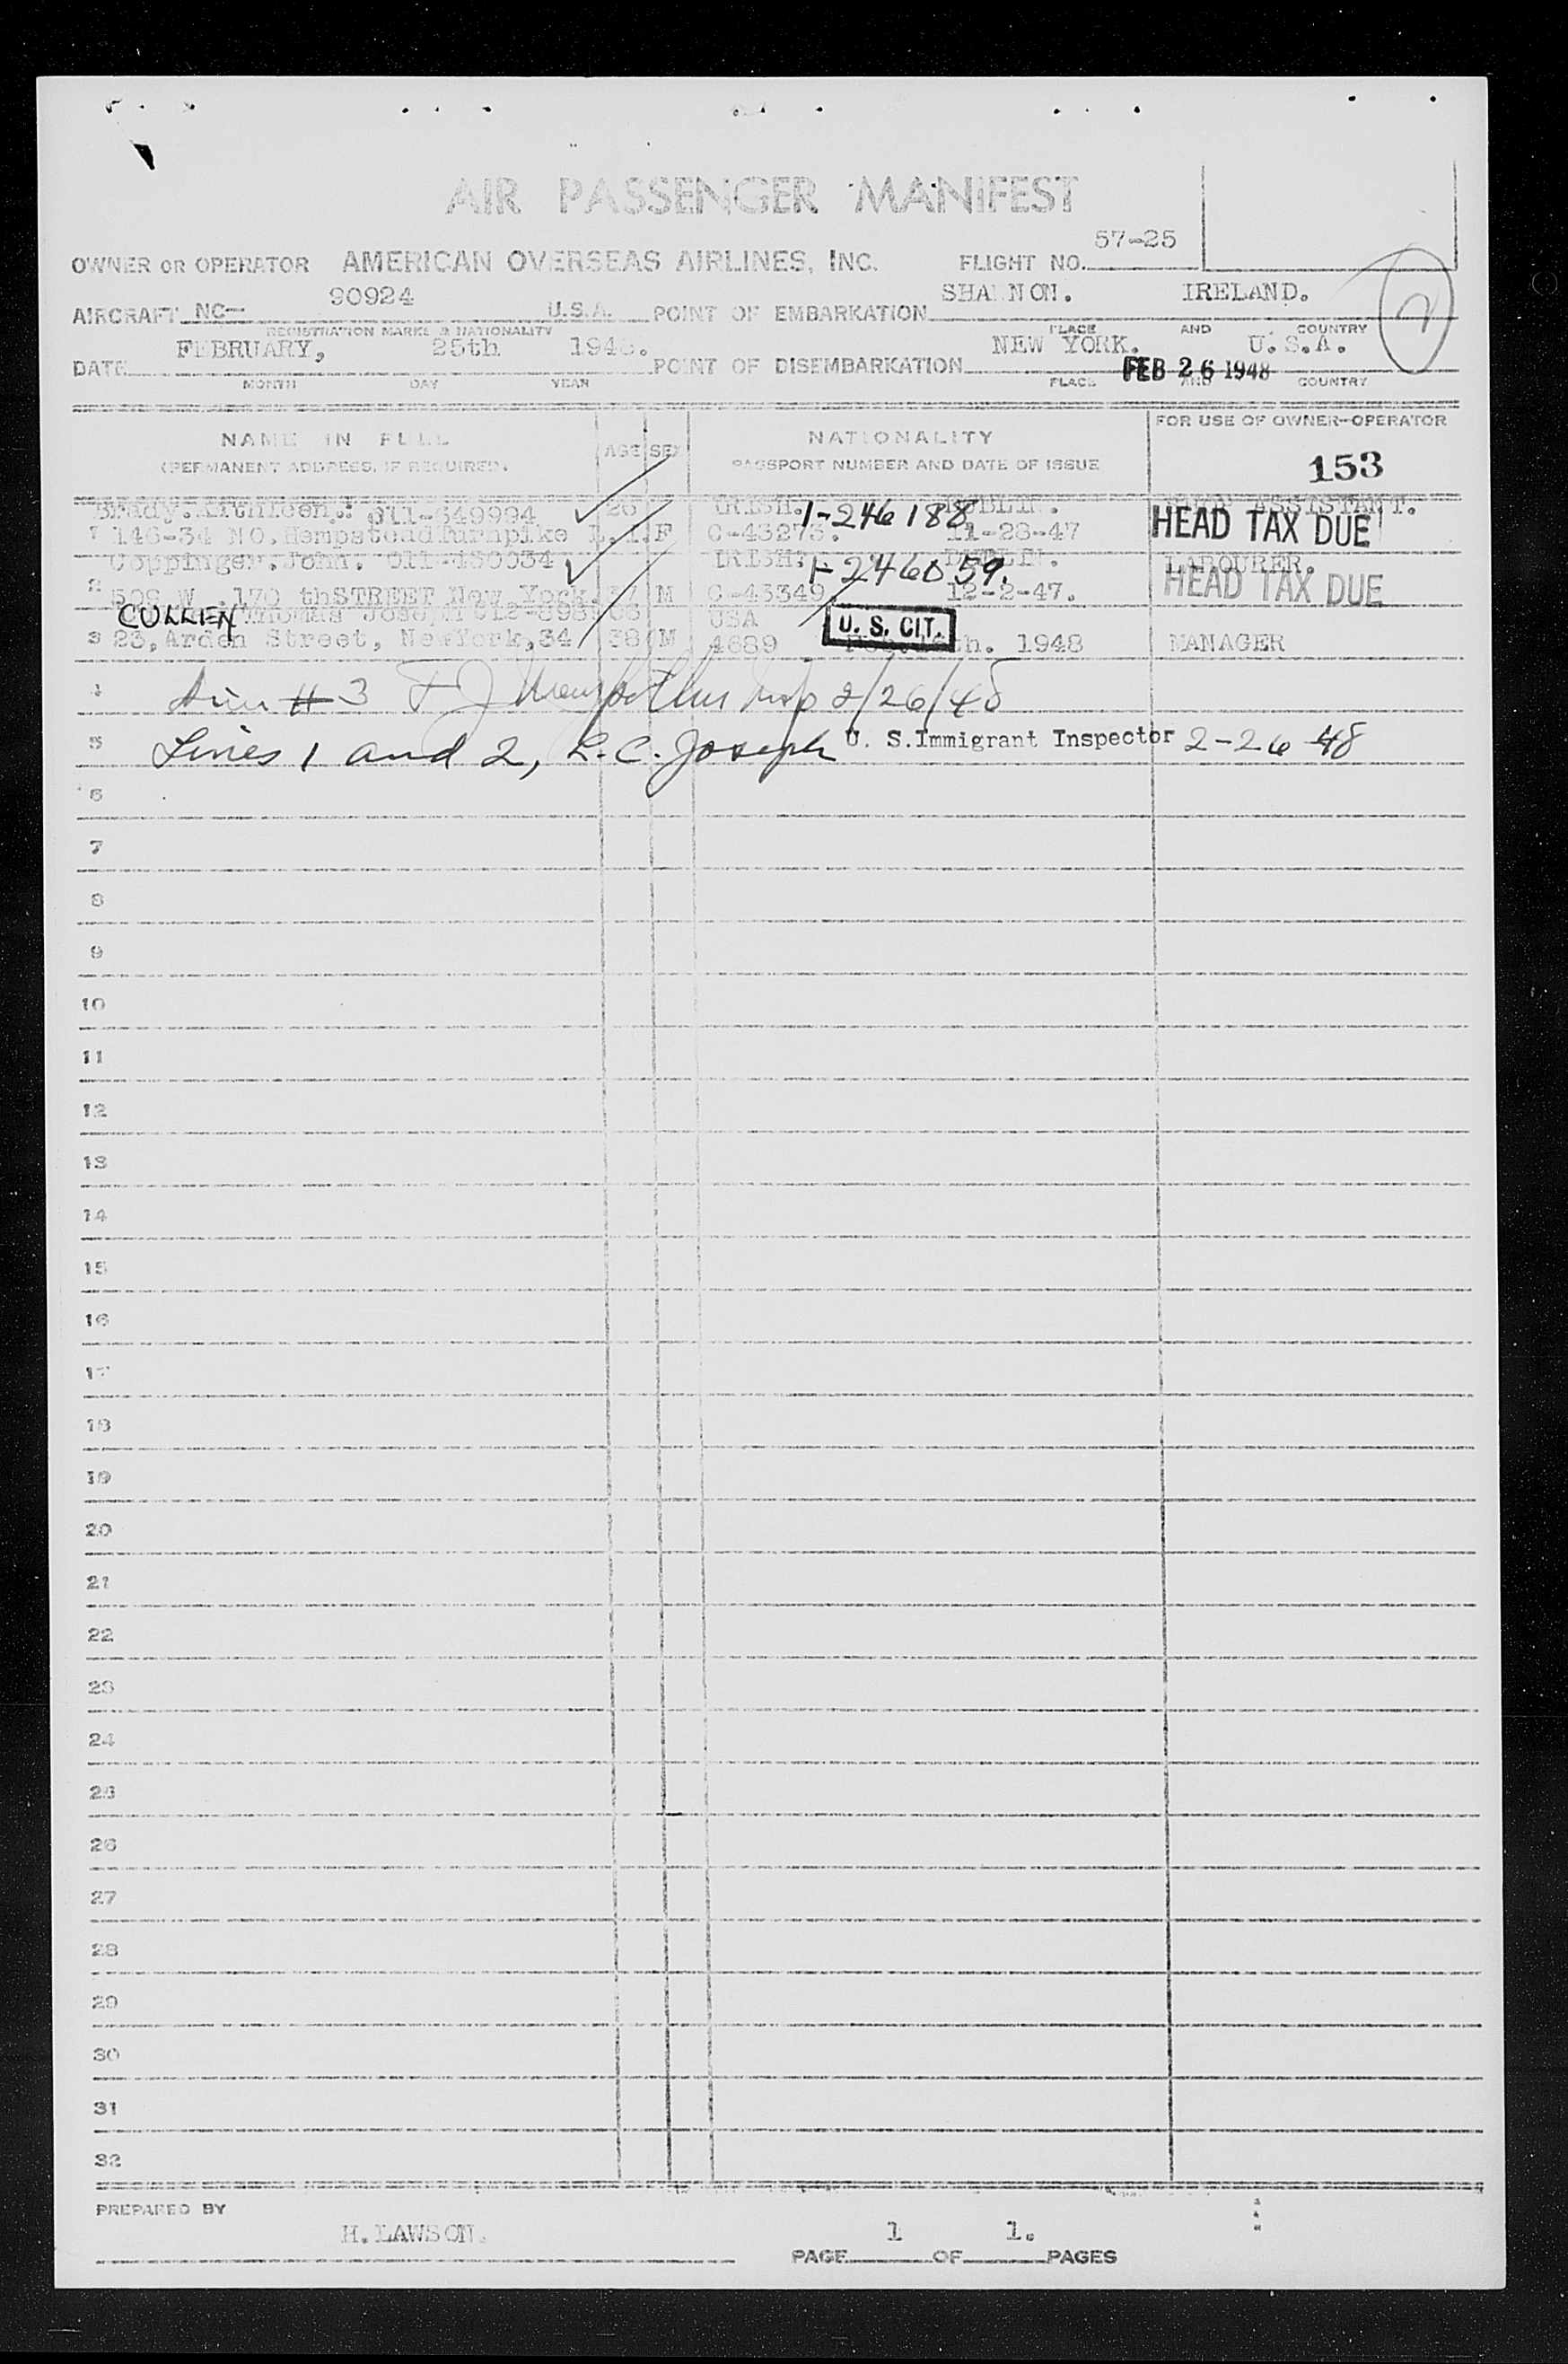 AIR PASSENGER MANIFEST
OWNER OR OPERATOR AMERICAN OVERSEAS AIRLINES, INC. FLIGHT NO. 57-25
AIRCRAFT NC- 90924 U.S.A. POINT OF EMBARKATION SHANNON. IRELAND.
REGISTRATION MARKS & NATIONALITY PLACE AND COUNTRY
DATE FEBRUARY, 25th 1948. POINT OF DISEMBARKATION NEW YORK. U.S.A.
FEB 26 1948
MONTH DAY YEAR PLACE AND COUNTRY
NAME IN FULL AGE SEX NATIONALITY FOR USE OF OWNER-OPERATOR
(PERMANENT ADDRESS, IF REQUIRED) PASSPORT NUMBER AND DATE OF ISSUE
153
Brady. Kathleen. 011-549994 26 IRISH. 1-246188 DUBLIN. ASSISTANT.
1 146-34 NO. Hempstead Turnpike L.I. F C-43273. 11-28-47 HEAD TAX DUE
Coppinger. John. IRISH. 1-246059. DUBLIN. LABOURER.
2 170 thSTREET New York. 37 M C-43349. 12-2-47. HEAD TAX DUE
CULLEN Thomas Joseph USA U. S. CIT.
3 23, Arden Street, NewYork, 34 38 M 4689 1948 MANAGER
4 # 3 2/26/48
5 Lines 1 and 2, L.C. Joseph U. S. Immigrant Inspector 2-26-48
6
7
8
9
10
11
12
13
14
15
16
17
18
19
20
21
22
23
24
25
26
27
28
29
30
31
32
PREPARED BY
H. LAWSON.
PAGE 1 OF 1. PAGES